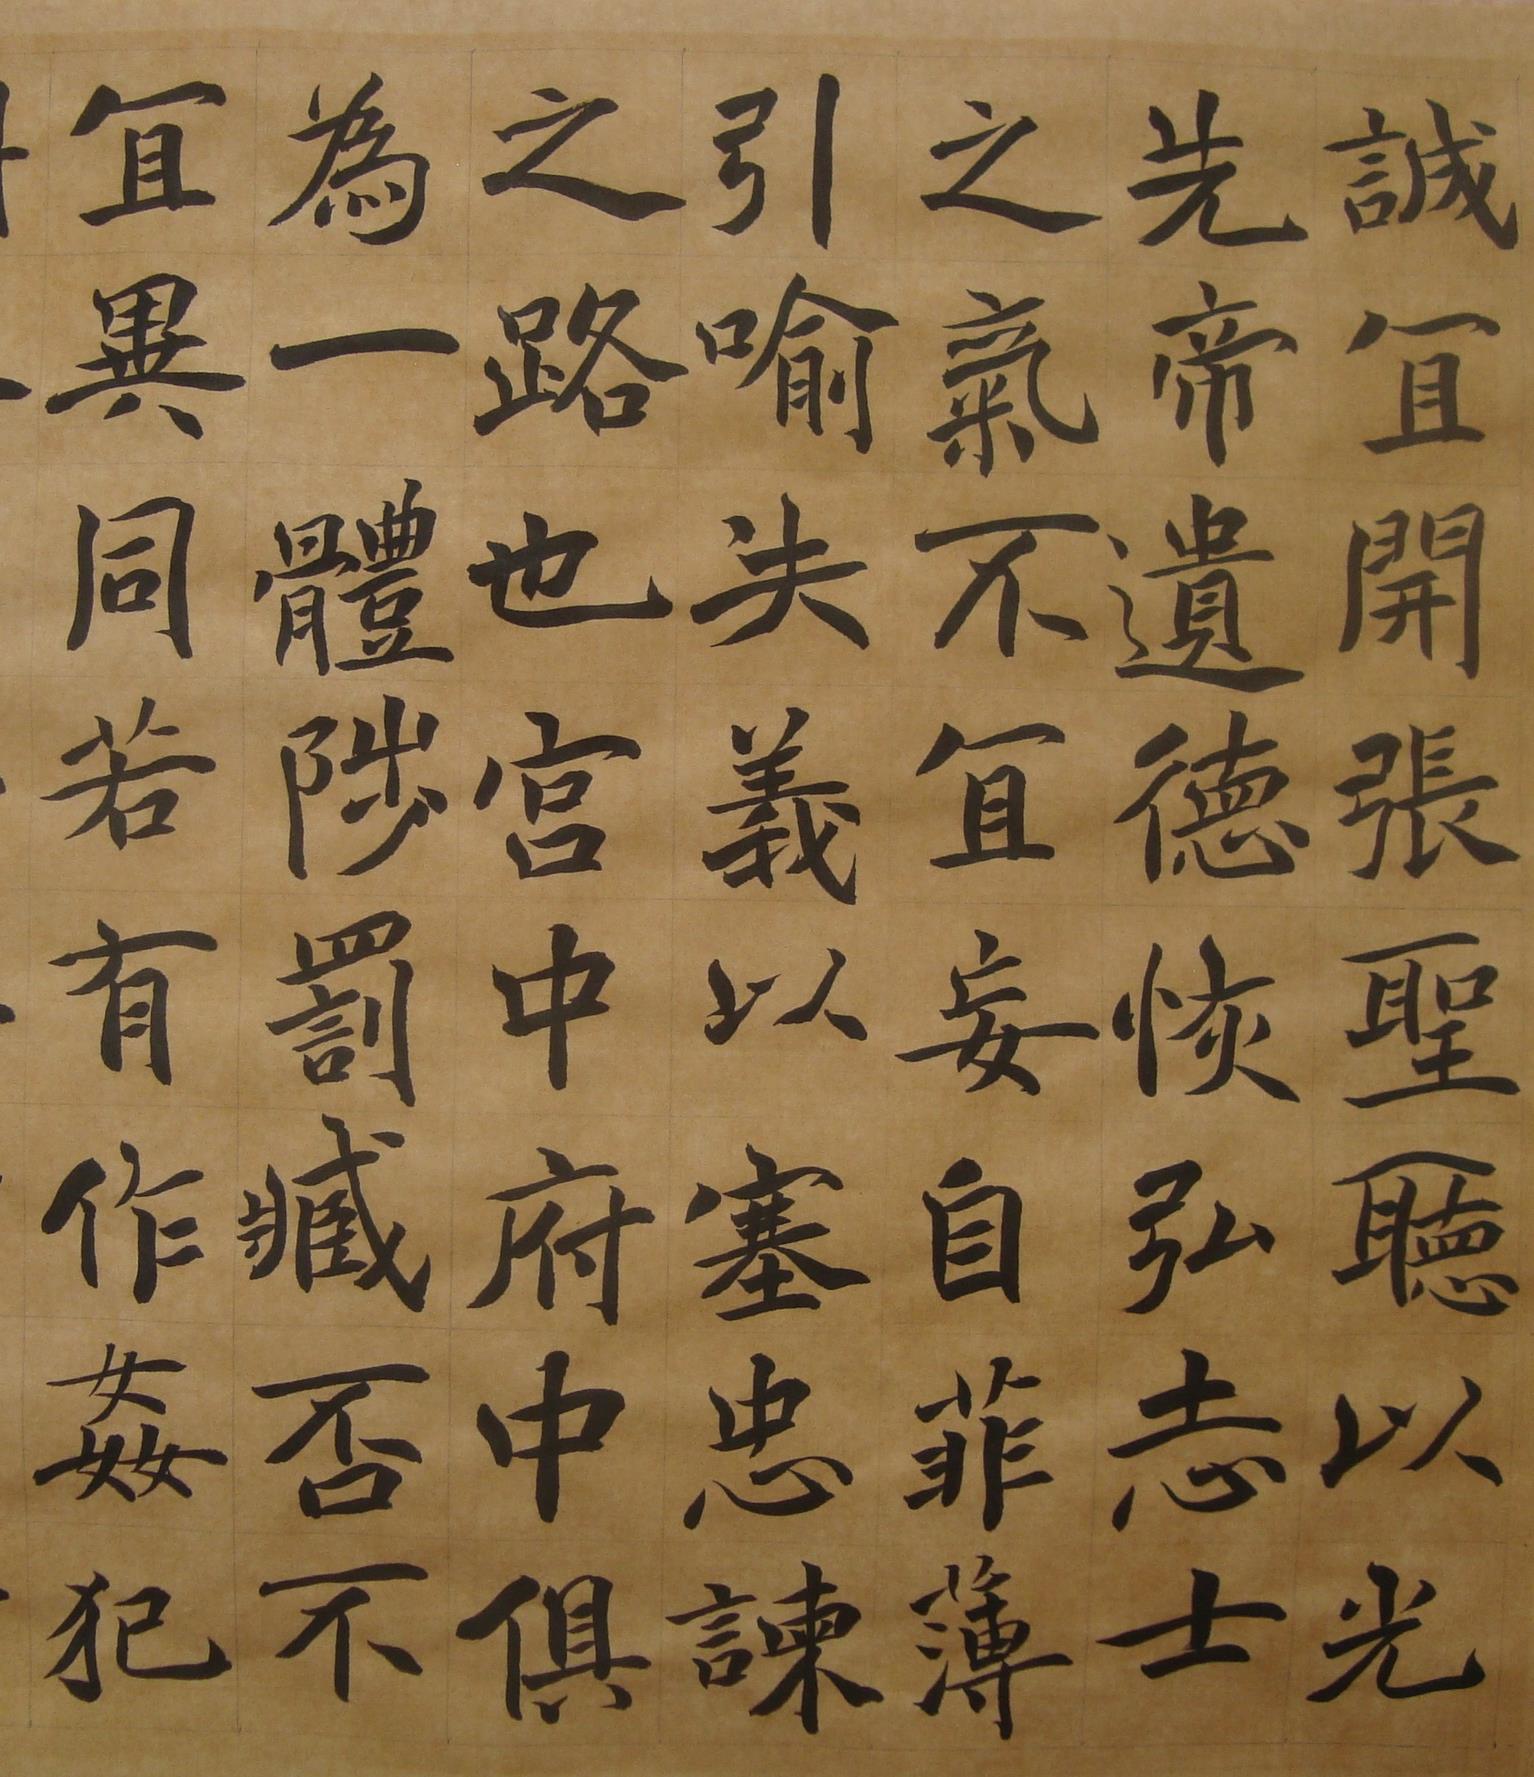 誠宜開張聖聽以光
先帝遺德恢弘志士
之氣不宜妄自菲薄
引喻失義以塞忠諫
之路也宮中府中俱
為一體陟罰臧否不
宜異同若有作姦犯